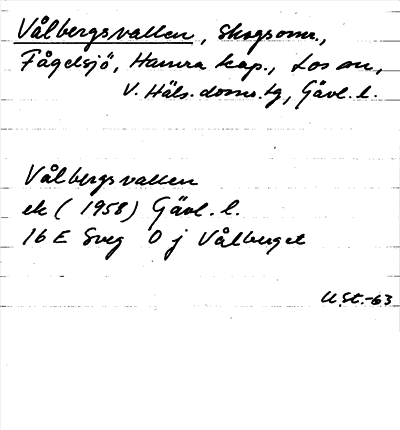 Vålbergsvallen, Skogsomr.,
Fågelsjö, Hamra kap., Los sn,
V. Häls. doms.tg, Gävl. l.
Vålbergsvallen
ek (1958) Gävl. l.
16 E Sveg 0 j Vålberget
U.St.-63